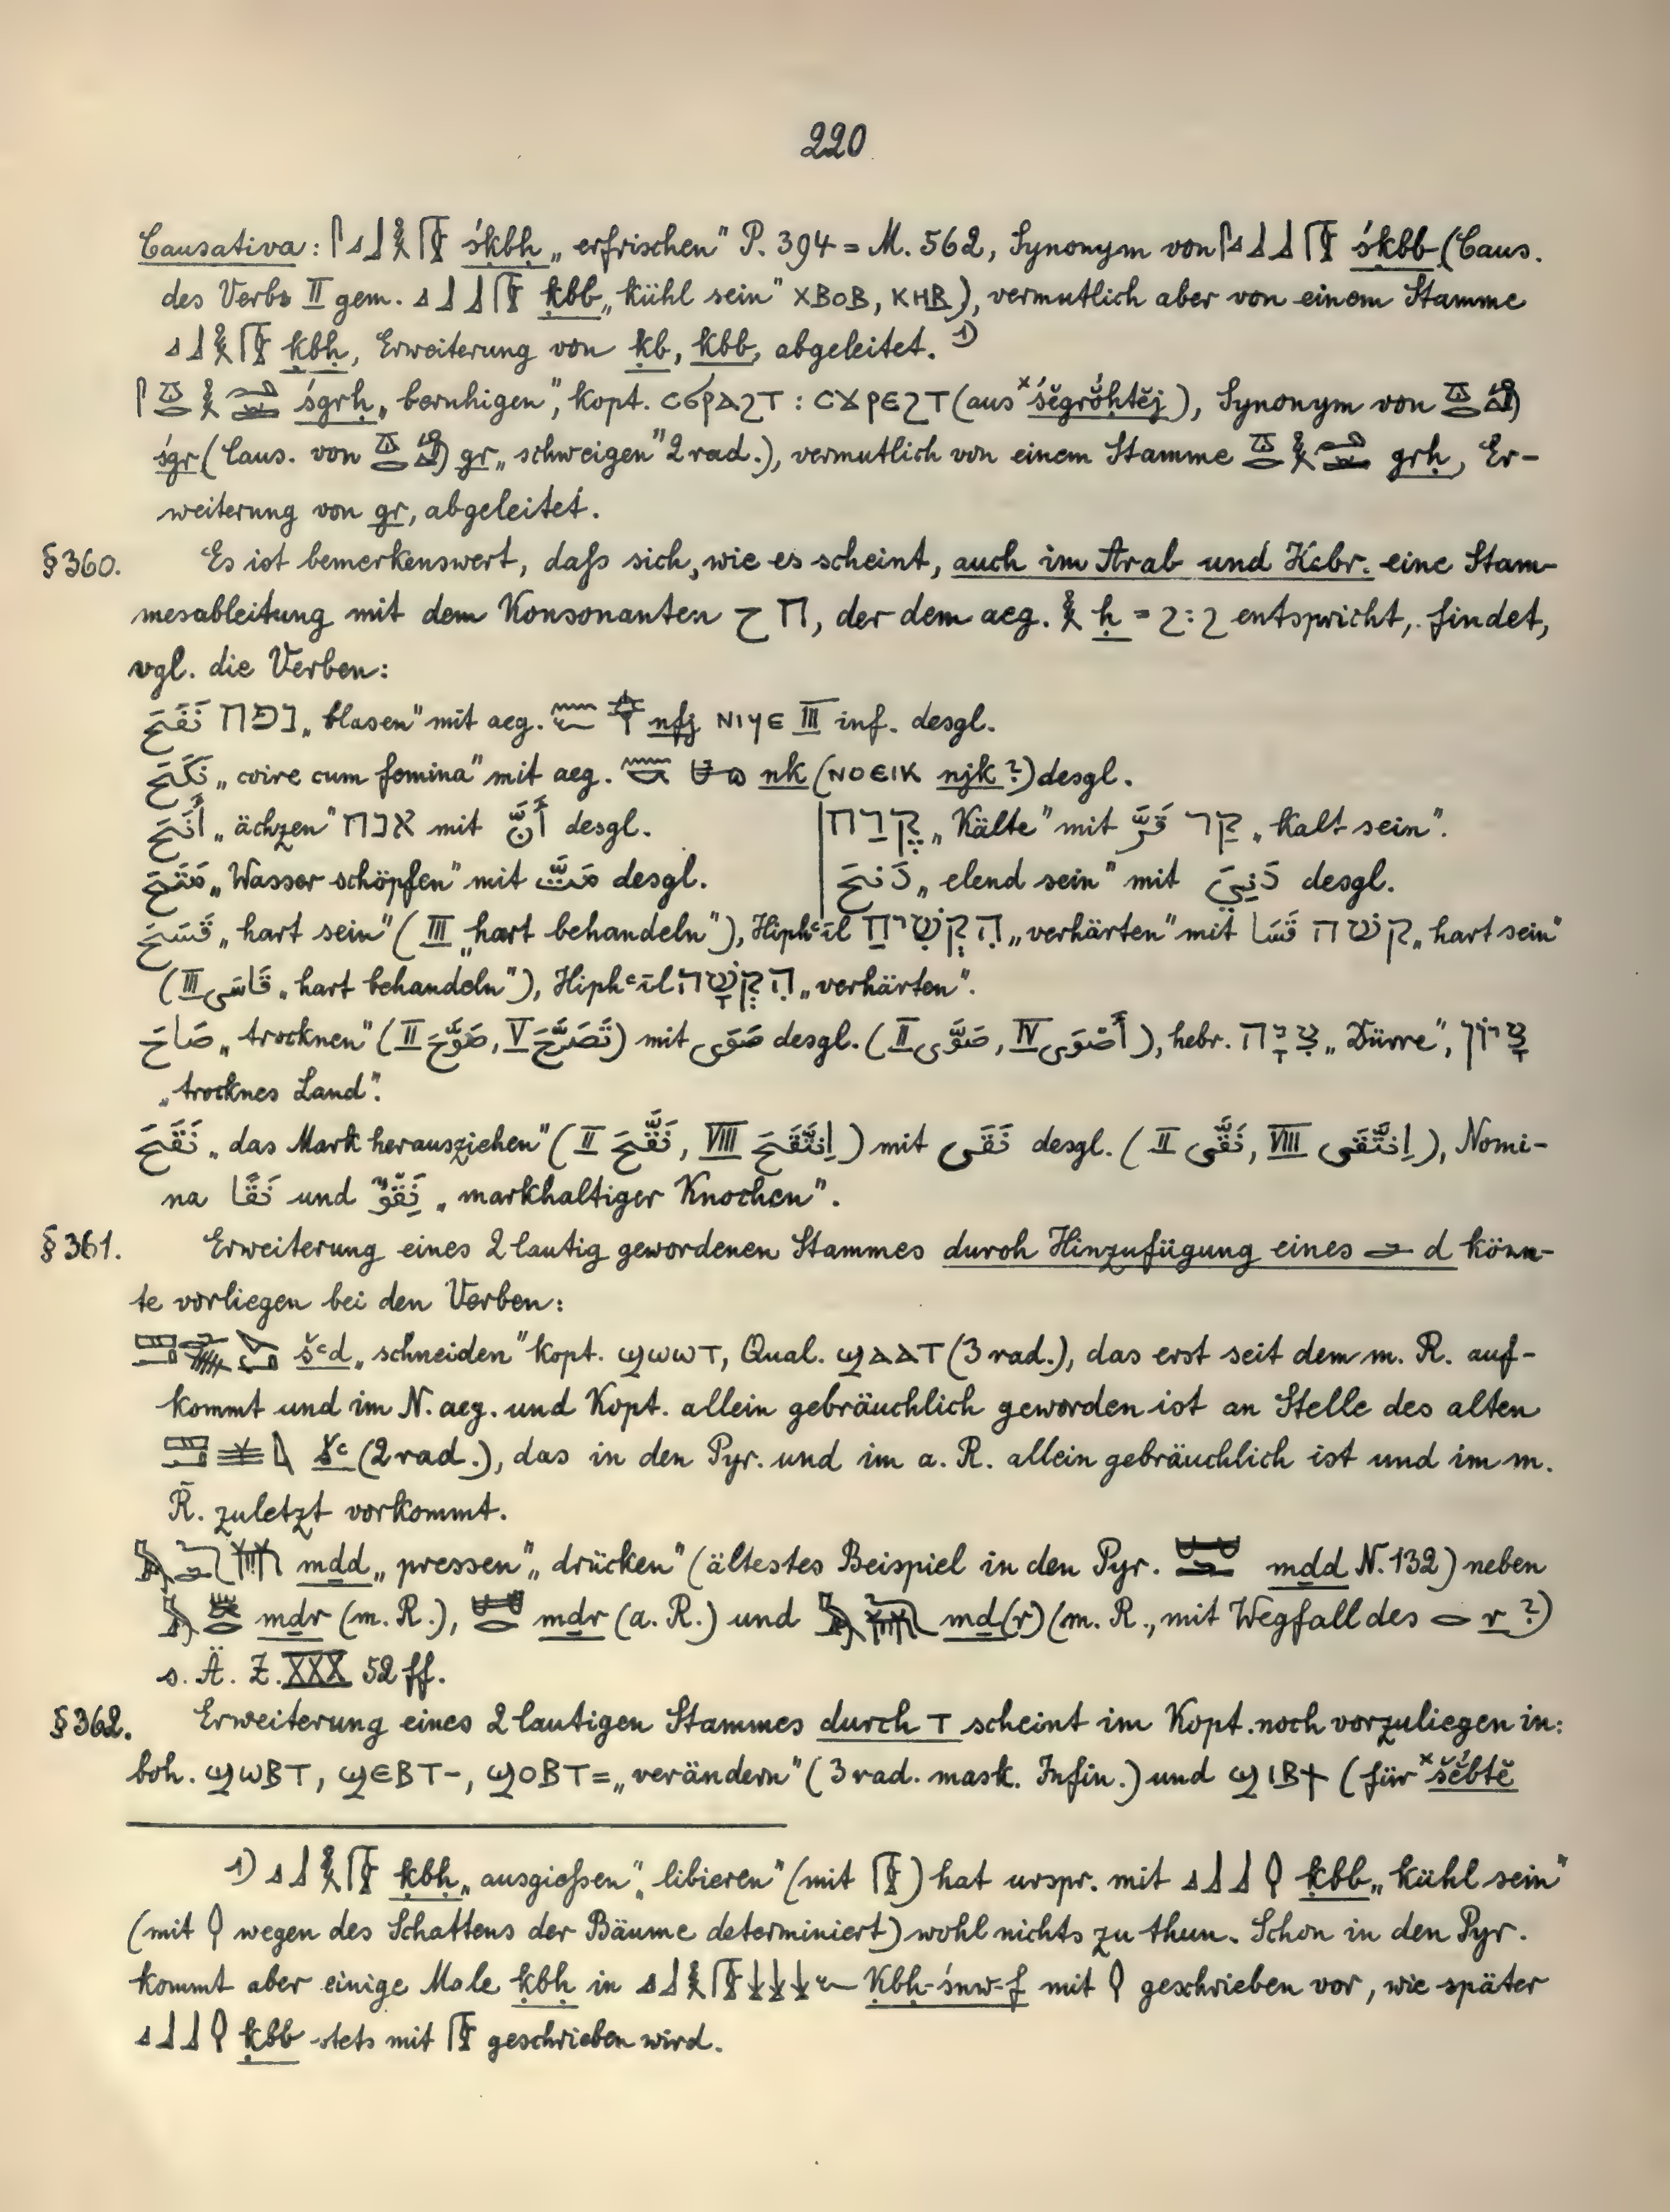 220
Causativa: 𓋴𓈎𓃀𓎛 śḳbḥ „erfrischen" P. 394 = M. 562, Synonym von 𓋴𓈎𓃀𓃀 śḳbb (Caus.
des Verbs II gem. 𓈎𓃀𓃀 ḳbb „kühl sein" ⲭⲃⲟⲃ, ⲕⲏⲃ), vermutlich aber von einem Stamme
𓈎𓃀𓎛 ḳbḥ, Erweiterung von ḳb, ḳbb, abgeleitet. 1)
śgrḥ „beruhigen", kopt. ⲥϭⲣⲁϩⲧ : ⲥϫⲣⲉϩⲧ (aus ˣśĕgrŏ́ḥtĕj), Synonym von
śgr (Caus. von gr „schweigen" 2 rad.), vermutlich von einem Stamme grḥ, Er-
weiterung von gr, abgeleitet.
§360. Es ist bemerkenswert, daſs sich, wie es scheint, auch im Arab und Hebr. eine Stam-
mesableitung mit dem Konsonanten ح ח, der dem aeg. 𓎛 ḥ = ϩ : ϩ entspricht, findet,
vgl. die Verben:
نَفَحَ נפח „blasen" mit aeg. nfj ⲛⲓϥⲉ III inf. desgl.
نَكَحَ „coire cum femina" mit aeg. nk (ⲛⲟⲉⲓⲕ njk ?) desgl.
أَنَحَ „ächzen" אנח mit أَنَّ desgl. | קֶרַח „Kälte" mit قَرَّ קר „kalt sein".
مَتَحَ „Wasser schöpfen" mit مَتَّ desgl. | دَنَحَ „elend sein" mit دَنِيَ desgl.
قَسَحَ „hart sein" (III „hart behandeln"), Hiphʿīl הִקְשִׁיחַ „verhärten" mit قَسَا קשה „hart sein"
(III قَاسَى „hart behandeln"), Hiphʿīl הִקְשָׁה „verhärten".
صَاحَ „trocknen" (II صَوَّحَ, V تَصَوَّحَ) mit صَوَى desgl. (II صَوَّى, IV أَصْوَى), hebr. צִיָּה „Dürre", צָיוֹן
„trocknes Land".
نَقَحَ „das Mark herausziehen" (II نَقَّحَ, VIII اِنْتَقَحَ) mit نَقَى desgl. (II نَقَّى, VIII اِنْتَقَى), Nomi-
na نَقًا und نِقْوٌ „markhaltiger Knochen".
§361. Erweiterung eines 2 lautig gewordenen Stammes durch Hinzufügung eines 𓂧 d könn-
te vorliegen bei den Verben:
šꜥd „schneiden" kopt. ϣⲱⲱⲧ, Qual. ϣⲁⲁⲧ (3 rad.), das erst seit dem m. R. auf-
kommt und im N. aeg. und Kopt. allein gebräuchlich geworden ist an Stelle des alten
šꜥ (2 rad.), das in den Pyr. und im a. R. allein gebräuchlich ist und im m.
R. zuletzt vorkommt.
mḏd „pressen", „drücken" (ältestes Beispiel in den Pyr. mḏd N. 132) neben
mḏr (m. R.), mḏr (a. R.) und mḏ(r) (m. R., mit Wegfall des 𓂋 r ?)
s. Ä. Z. XXX 52 ff.
§362. Erweiterung eines 2 lautigen Stammes durch ⲧ scheint im Kopt. noch vorzuliegen in:
boh. ϣⲱⲃⲧ, ϣⲉⲃⲧ-, ϣⲟⲃⲧ= „verändern" (3 rad. mask. Infin.) und ϣⲓⲃϯ (für ˣšĕ́btĕ
1) 𓈎𓃀𓎛 ḳbḥ „ausgieſsen", „libieren" (mit ) hat urspr. mit 𓈎𓃀𓃀 ḳbb „kühl sein"
(mit wegen des Schattens der Bäume determiniert) wohl nichts zu thun. Schon in den Pyr.
kommt aber einige Male ḳbḥ in Ḳbḥ-śnw-f mit geschrieben vor, wie später
𓈎𓃀𓃀 ḳbb stets mit geschrieben wird.